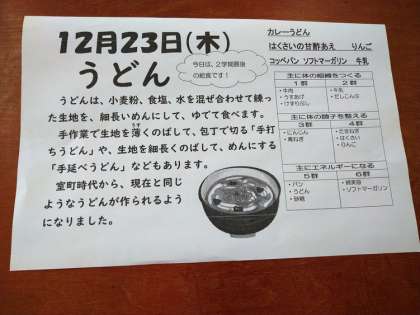 12月23日(木)
うどん
今日は、2学期最後
の給食です!
うどんは、小麦粉、食塩、水を混ぜ合わせて練っ
た生地を、細長いめんにして、ゆでて食べます。
手作業で生地を薄くのばして、包丁で切る「手打
ちうどん」や、生地を細長くのばして、めんにする
「手延べうどん」などもあります。
室町時代から、現在と同じ
ようなうどんが作られるよう
になりました。
カレーうどん
はくさいの甘酢あえ りんご
コッペパン ソフトマーガリン 牛乳
主に体の組織をつくる
1群 2群
・牛肉 ・牛乳
・うすあげ ・だしこんぶ
・けずりぶし
主に体の調子を整える
3群 4群
・にんじん ・たまねぎ
・青ねぎ ・はくさい
・りんご
主にエネルギーになる
5群 6群
・パン ・綿実油
・うどん ・ソフトマーガリン
・砂糖